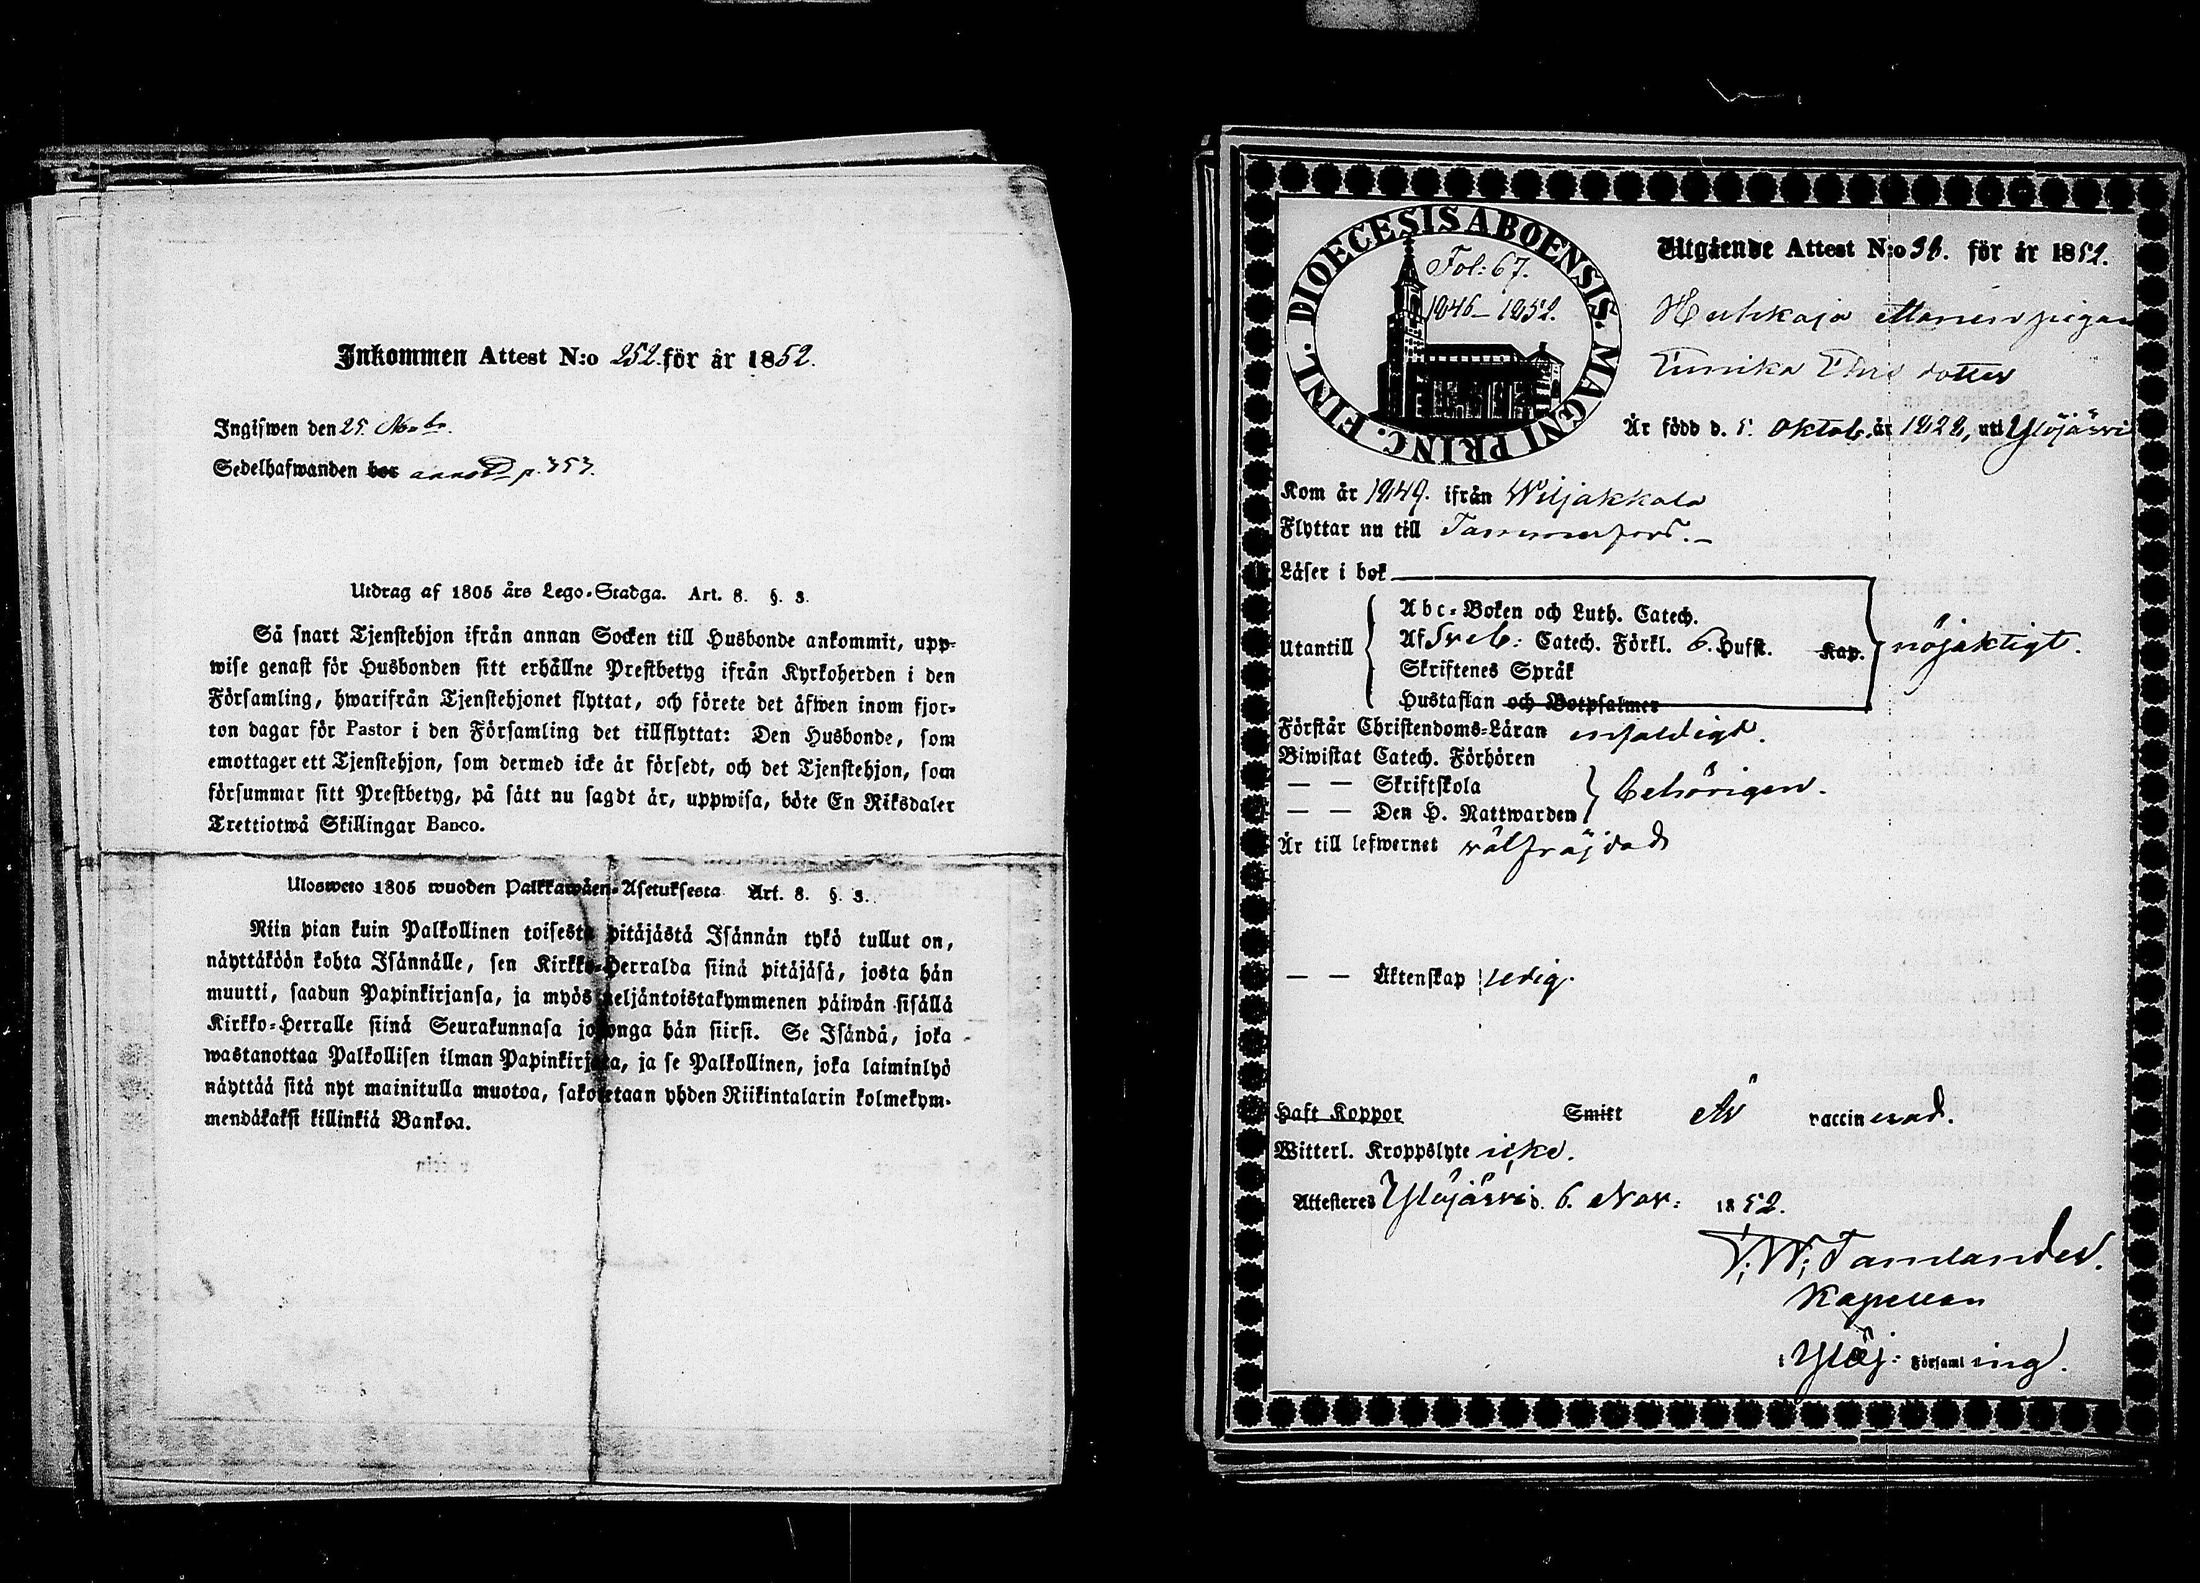 Inkommen Attest N:o 252. för år 1852.
Ingifwen den 25. Nov.
Sedelhafwanden bor annot p. 353.
Utdrag af 1805 års Lego-Stadga. Art. 8. §. 3.
Så snart Tjenstehjon ifrån annan Socken till Husbonde ankommit, upp-
wise genast för Husbonden sitt erhållne Prestbetyg ifrån Kyrkoherden i den
Församling, hwarifrån Tjenstehjonet flyttat, och förete det äfwen inom fjor-
ton dagar för Pastor i den Församling det tillflyttat: Den Husbonde, som
emottager ett Tjenstehjon, som dermed icke är försedt, och det Tjenstehjon, som
försummar sitt Prestbetyg, på sätt nu sagdt är, uppwisa, böte En Riksdaler
Trettiotwå Skillingar Banco.
Uloswето 1805 wuoden Palkkawäen-Asetuksesta Art. 8. §. 3.
Niin pian kuin Palkollinen toisesta pitäjästä Isännän tykö tullut on,
näyttäköön kohta Isännälle, sen Kirkko-Herralda siinä pitäjäsä, josta hän
muutti, saadun Papinkirjansa, ja myös neljäntoistakymmenen päiwän sisällä
Kirkko-Herralle siinä Seurakunnasa johonga hän siirsi. Se Isändä, joka
wastanottaa Palkollisen ilman Papinkirjata, ja se Palkollinen, joka laiminlyö
näyttää sitä nyt mainitulla muotoa, sakotetaan yhden Riikintalarin kolmekym-
mendäkaksi killinkiä Bankoa.
DIOECESIS ABOENSIS. MAGNI PRINC. FINL.
Fol: 67.
1846–1852.
Utgående Attest N:o 38. för år 1852.
Huhkaja pigan
dotter
Är född d. 5. Oktob. år 1828, uti Ylöjärvi
Kom år 1849. ifrån Wiljakkala
Flyttar nu till Tammerfors.
Läser i bok
Utantill
Abc-Boken och Luth. Catech.
Af Sveb: Catech. Förkl. 6. Hufst. Kap. nöjaktigt.
Skriftenes Språk
Hustaflan och Botpsalmer
Förstår Christendoms-Läran enfaldigt.
Biwistat Catech. Förhören
— — Skriftskola behörigen.
— — Den H. Nattwarden
Är till lefwernet välfräjdad
— — Äktenskap ledig.
Haft Koppor Smitt Är vaccinerad.
Witterl. Kroppslyte icke.
Attesteres Ylöjärvi d. 6. Nov: 1852.
Tamlander.
Kapellan
i Ylöj: Församling.